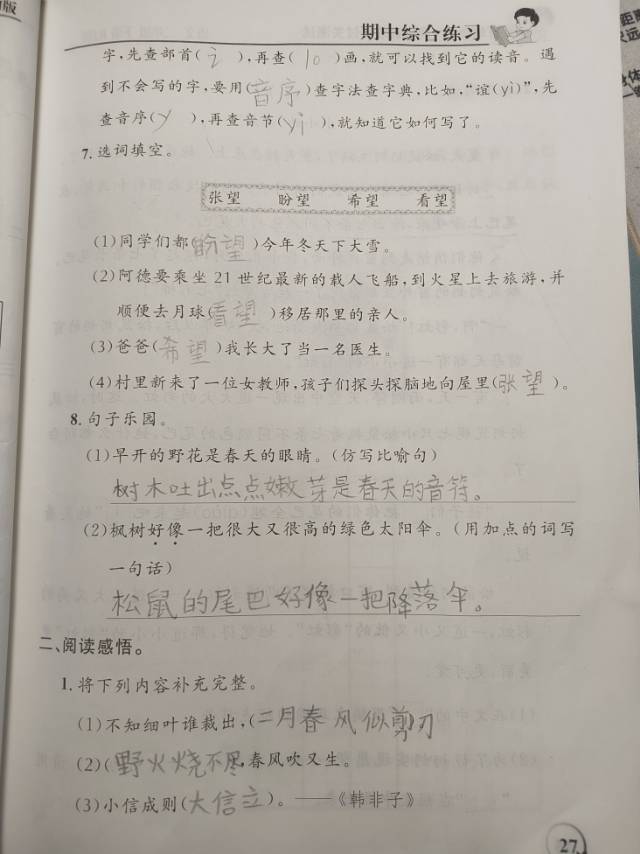 期中综合练习
字,先查部首(辶),再查(10)画,就可以找到它的读音。遇
到不会写的字,要用(音序)查字法查字典,比如,“谊(yì)”,先
查音序(Y),再查音节(yi),就知道它如何写了。
7.选词填空。
张望 盼望 希望 看望
(1)同学们都(盼望)今年冬天下大雪。
(2)阿德要乘坐21世纪最新的载人飞船,到火星上去旅游,并
顺便去月球(看望)移居那里的亲人。
(3)爸爸(希望)我长大了当一名医生。
(4)村里新来了一位女教师,孩子们探头探脑地向屋里(张望)。
8.句子乐园。
(1)早开的野花是春天的眼睛。(仿写比喻句)
树木吐出点点嫩芽是春天的音符。
(2)枫树好像一把很大又很高的绿色太阳伞。(用加点的词写
一句话)
松鼠的尾巴好像一把降落伞。
二、阅读感悟。
1.将下列内容补充完整。
(1)不知细叶谁裁出,(二月春风似剪刀
(2)(野火烧不尽,春风吹又生。
(3)小信成则(大信立)。——《韩非子》
27